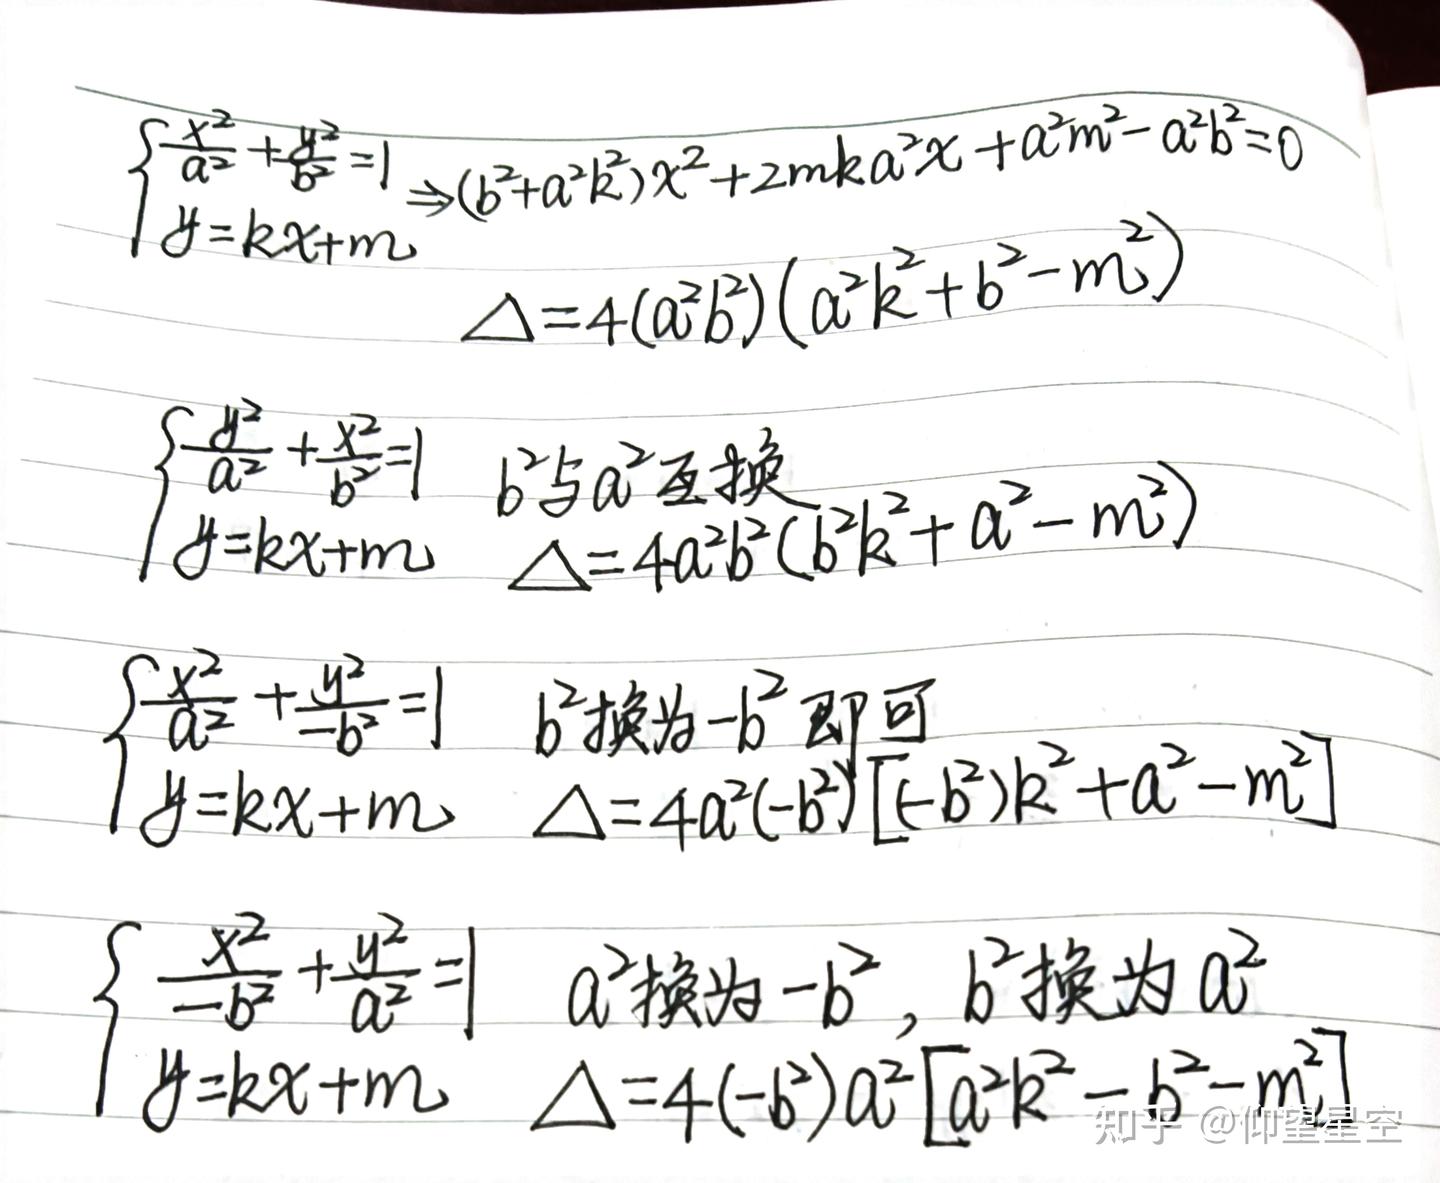 { x²/a² + y²/b² = 1 ⇒ (b²+a²k²)x²+2mka²x+a²m²-a²b²=0
y=kx+m
△=4(a²b²)(a²k²+b²-m²)
{ y²/a² + x²/b² = 1 b²与a²互换
y=kx+m △=4a²b²(b²k²+a²-m²)
{ x²/a² + y²/-b² = 1 b²换为-b²即可
y=kx+m △=4a²(-b²)[(-b²)k²+a²-m²]
{ x²/-b² + y²/a² = 1 a²换为-b², b²换为a²
y=kx+m △=4(-b²)a²[a²k²-b²-m²]
知乎 @仰望星空